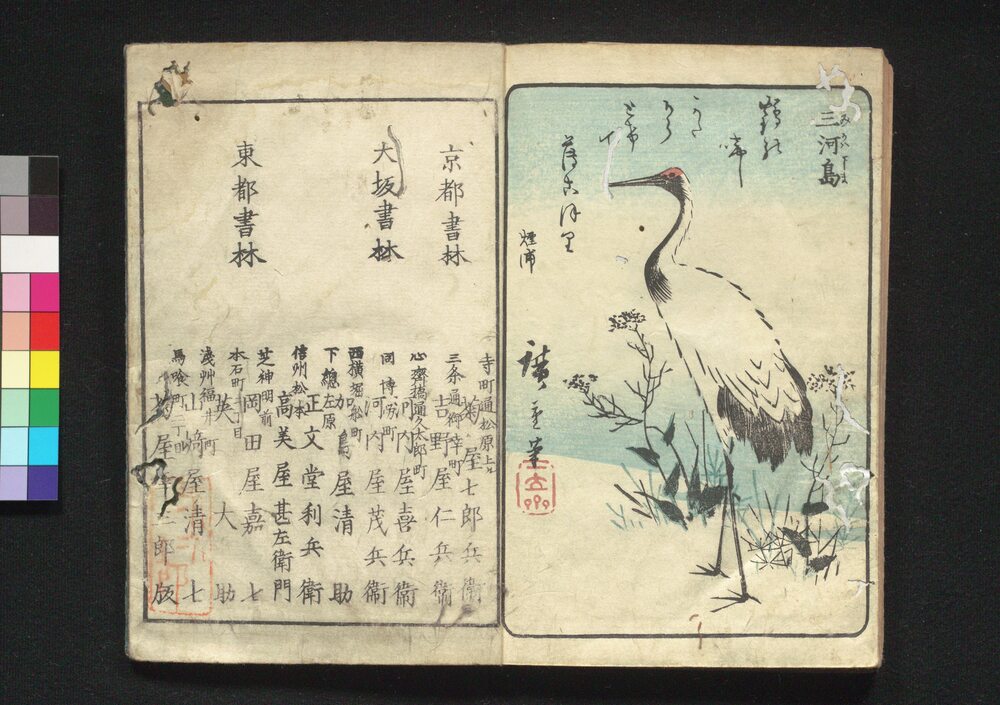 三河島
みかはしま
廣重筆
煙浦
京都書林
寺町通松原上ル
菊屋七郎兵衛
三条通御幸町
吉野屋仁兵衛
大坂書林
心斎橋通久太郎町
河内屋喜兵衛
同博労町
河内屋茂兵衛
西横堀舩町
加嶋屋清助
東都書林
下総左原
正文堂利兵衛
信州松本
高美屋甚左衛門
芝神明前
岡田屋嘉七
本石町二丁目
英大助
浅艸福井町
山崎屋清七
馬喰町二丁目
菊屋三郎版